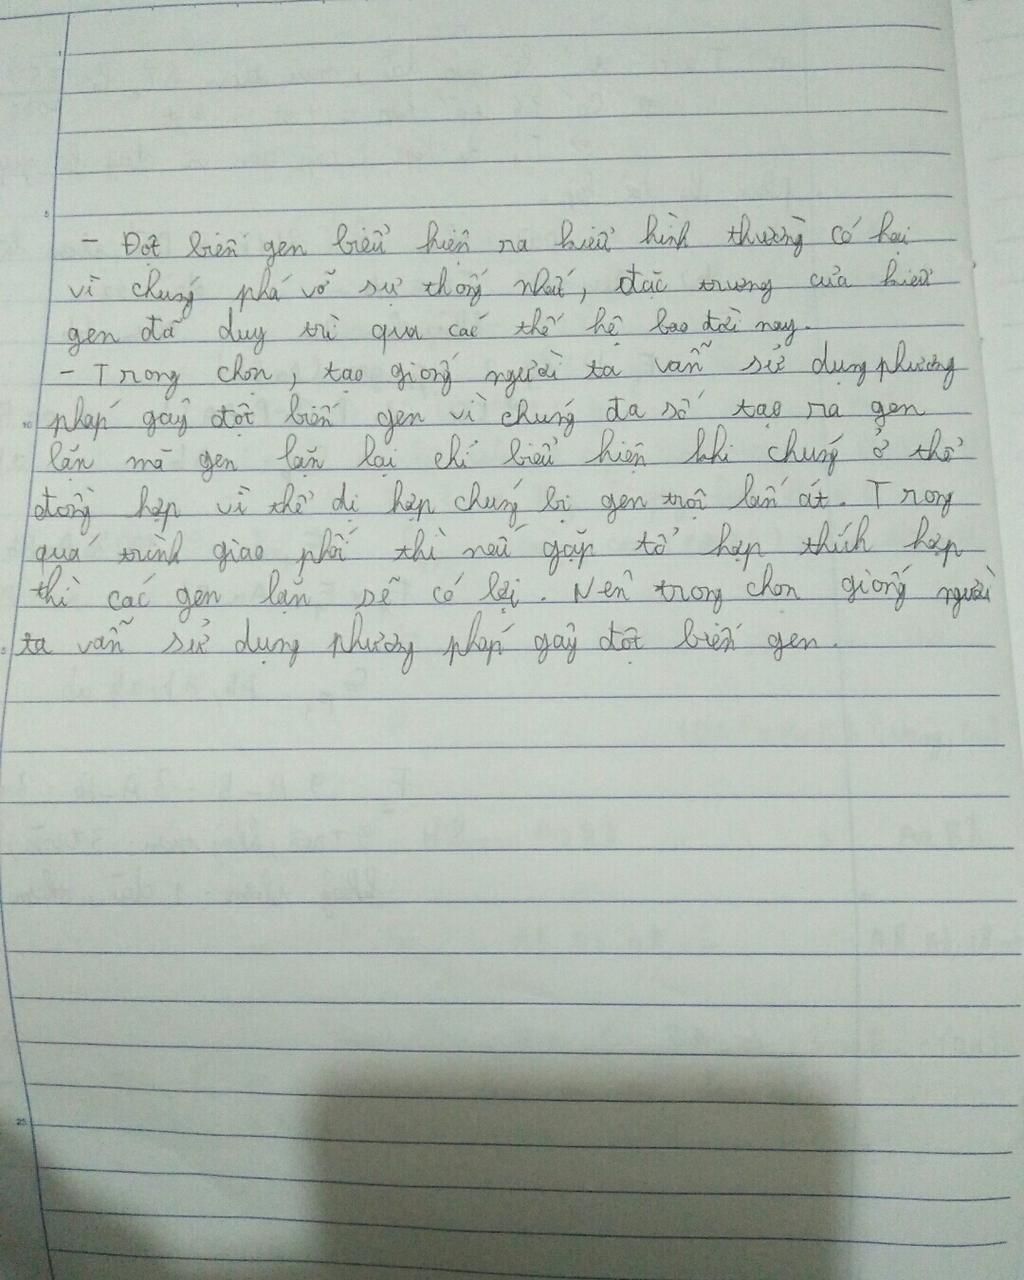 - Đột biến gen biểu hiện ra kiểu hình thường có hại
vì chúng phá vỡ sự thống nhất, đặc trưng của kiểu
gen đã duy trì qua các thế hệ bao đời nay.
- Trong chọn, tạo giống người ta vẫn sử dụng phương
pháp gây đột biến gen vì chúng đa số tạo ra gen
lặn mà gen lặn lại chỉ biểu hiện khi chúng ở thể
đồng hợp vì thể dị hợp chúng bị gen trội lấn át. Trong
quá trình giao phối thì nếu gặp tổ hợp thích hợp
thì các gen lặn sẽ có lợi. Nên trong chọn giống người
ta vẫn sử dụng phương pháp gây đột biến gen.